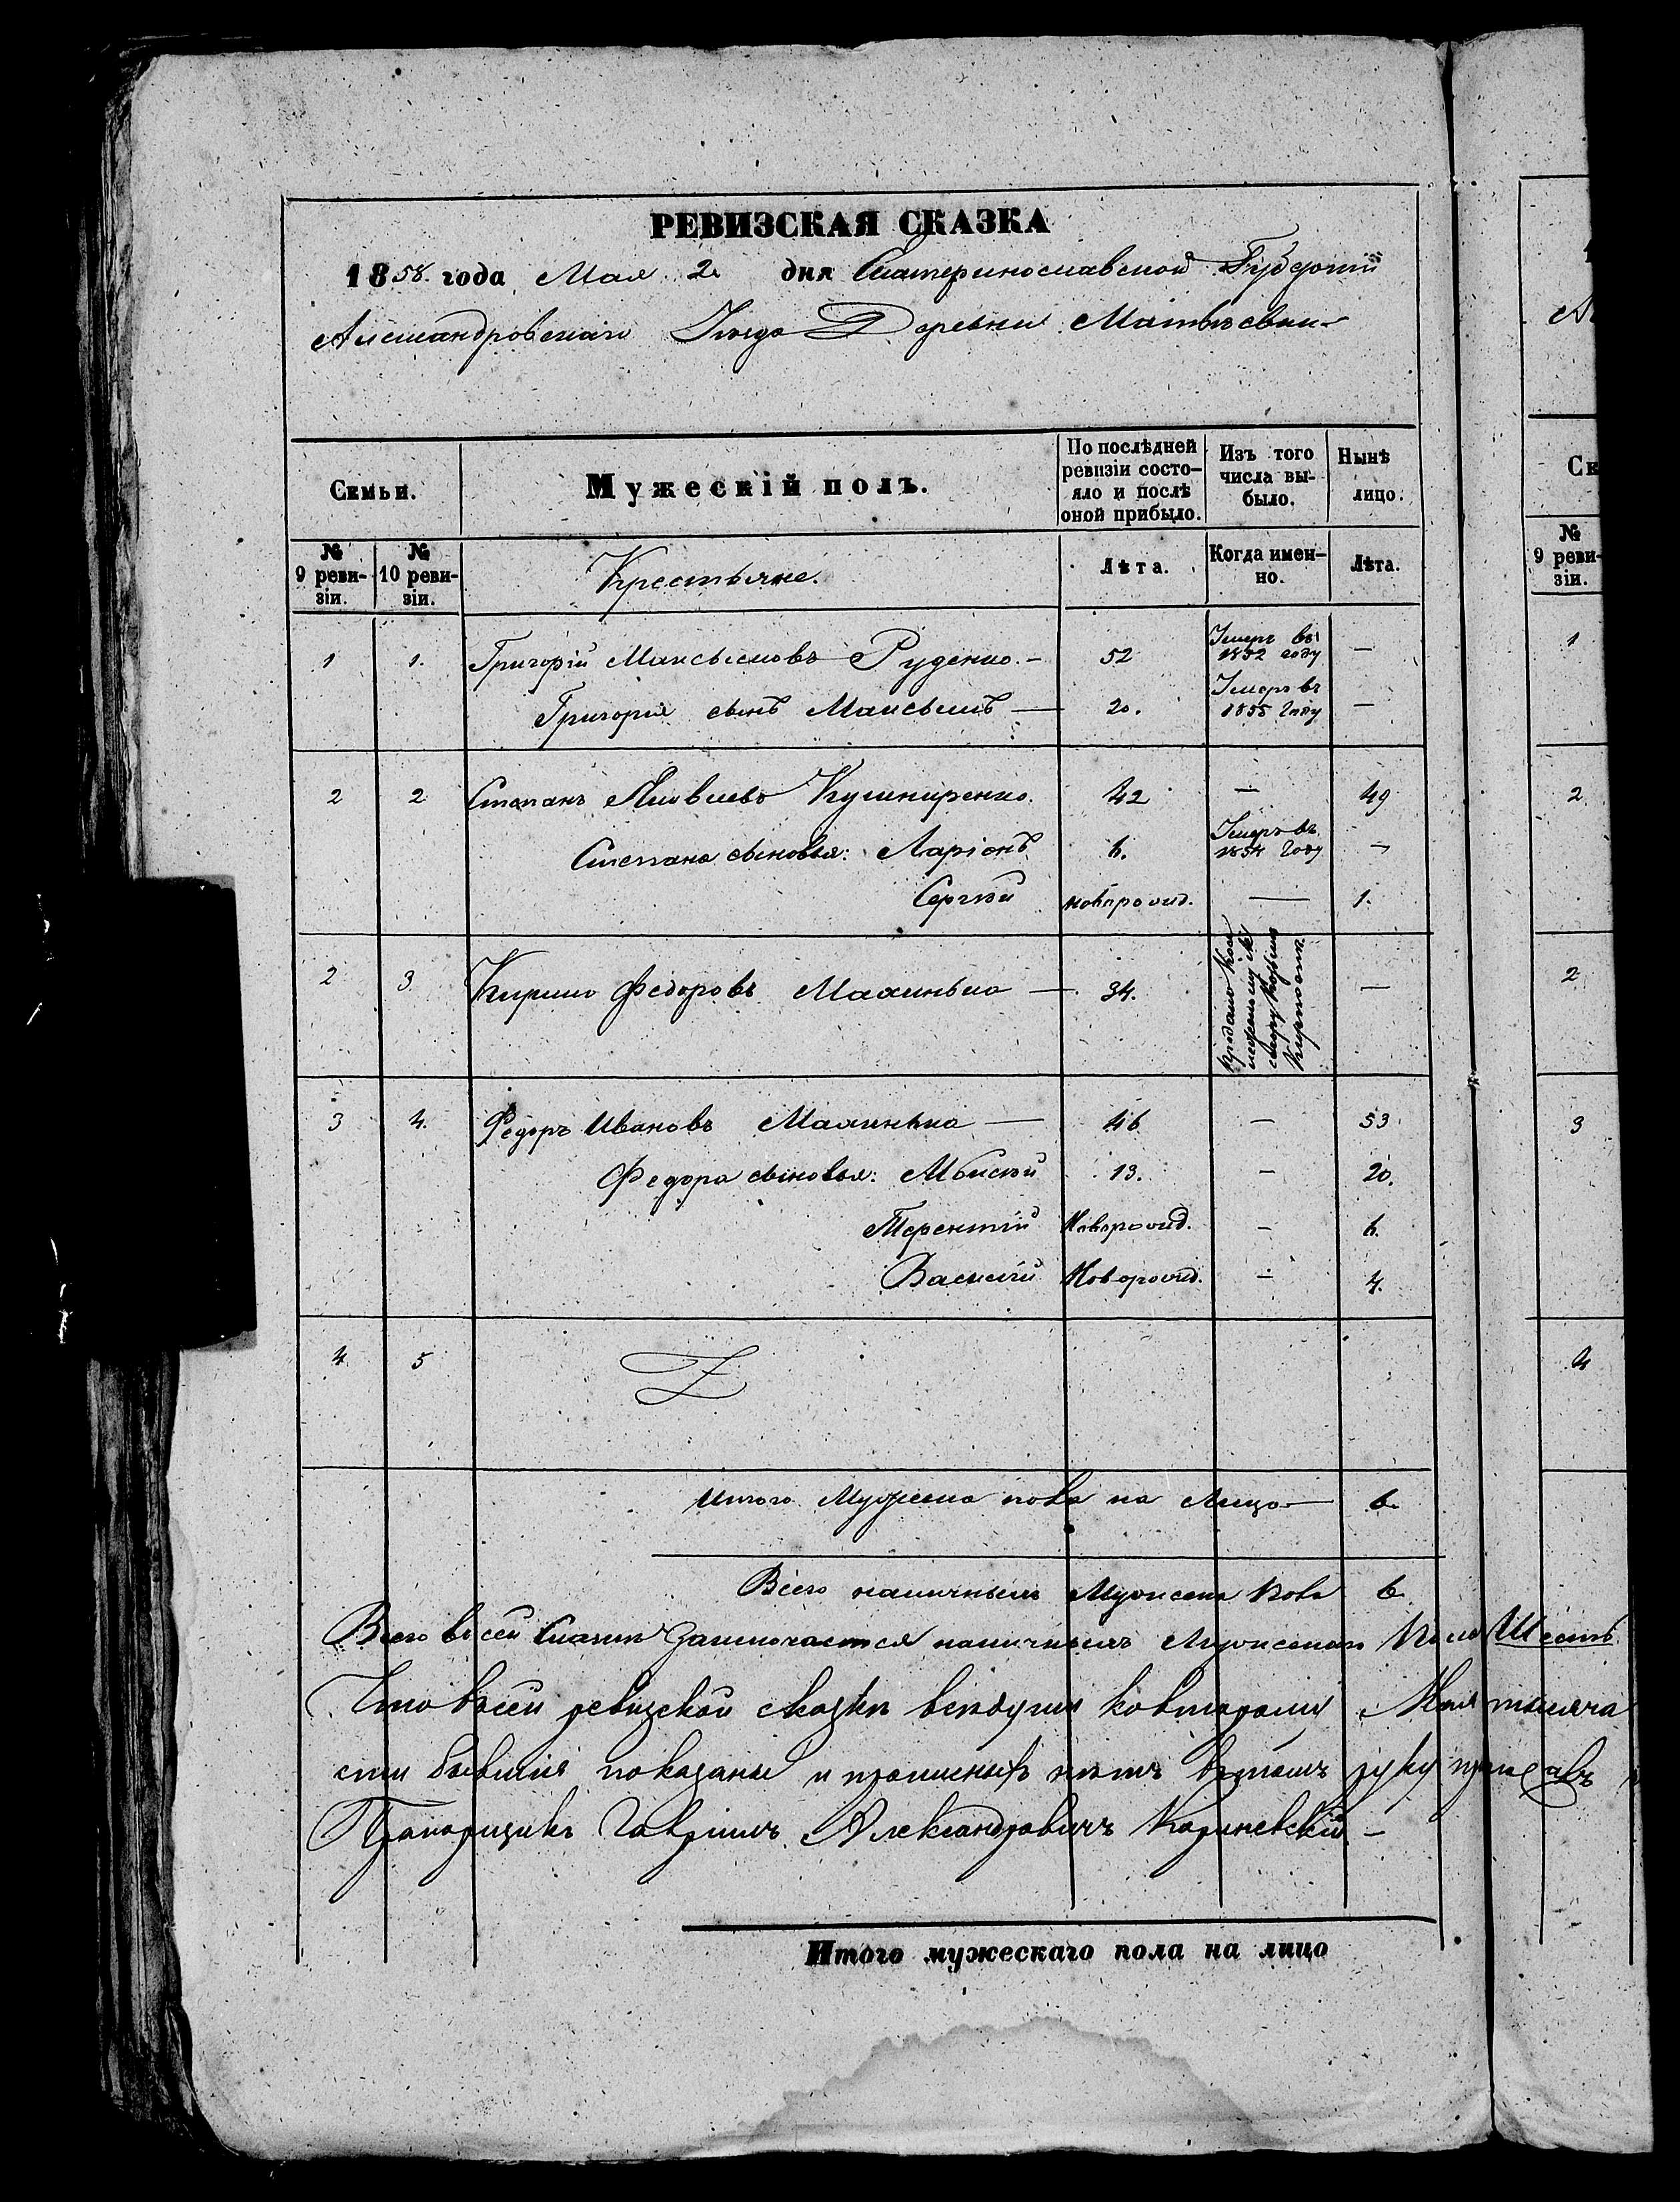 РЕВИЗСКАЯ СКАЗКА
1858 года Мая 2 дня Екатеринославской Губерніи
Александровскаго Уезда Деревни Матвѣевки
Семьи.
Мужескій полъ.
По послѣдней ревизіи состояло и послѣ оной прибыло.
Изъ того числа выбыло.
Нынѣ лицо.
№ 9 ревизіи.
№ 10 ревизіи.
Крестьяне.
Лѣта.
Когда именно.
Лѣта.
1 1. Григорій Максимовъ Руденко. — 52 Умеръ въ 1852 году —
Григорія сынъ Максимъ — 20. Умеръ въ 1855 году —
2 2 Степанъ Яковлевъ Кушниренко. 42 — 49
Степана сыновья: Ларіонъ 6. Умеръ въ 1854 Году —
Сергѣй новорожд. — 1.
2 3 Кирило Федоровъ Малинька — 34. —
3 4. Федоръ Ивановъ Малинька — 46 — 53
Федора сыновья: Моисѣй 13. — 20.
Терентій Новорожд. — 6.
Василій Новорожд. — 4.
4 5
Итого Мужеска пола на Лицо — 6.
Всего наличныхъ Мужеска Пола 6
Всего въ сей Сказкѣ Заключается наличныхъ Мужескаго Пола Шесть
Что въ сей ревизской сказкѣ все души которыя тысяча
бывшія показаны и прописныхъ нѣтъ въ томъ руку
Прапорщикъ Гавріилъ Александровичъ
Итого мужескаго пола на лицо
Се
№ 9 ревизіи.
1
2
2
3
4